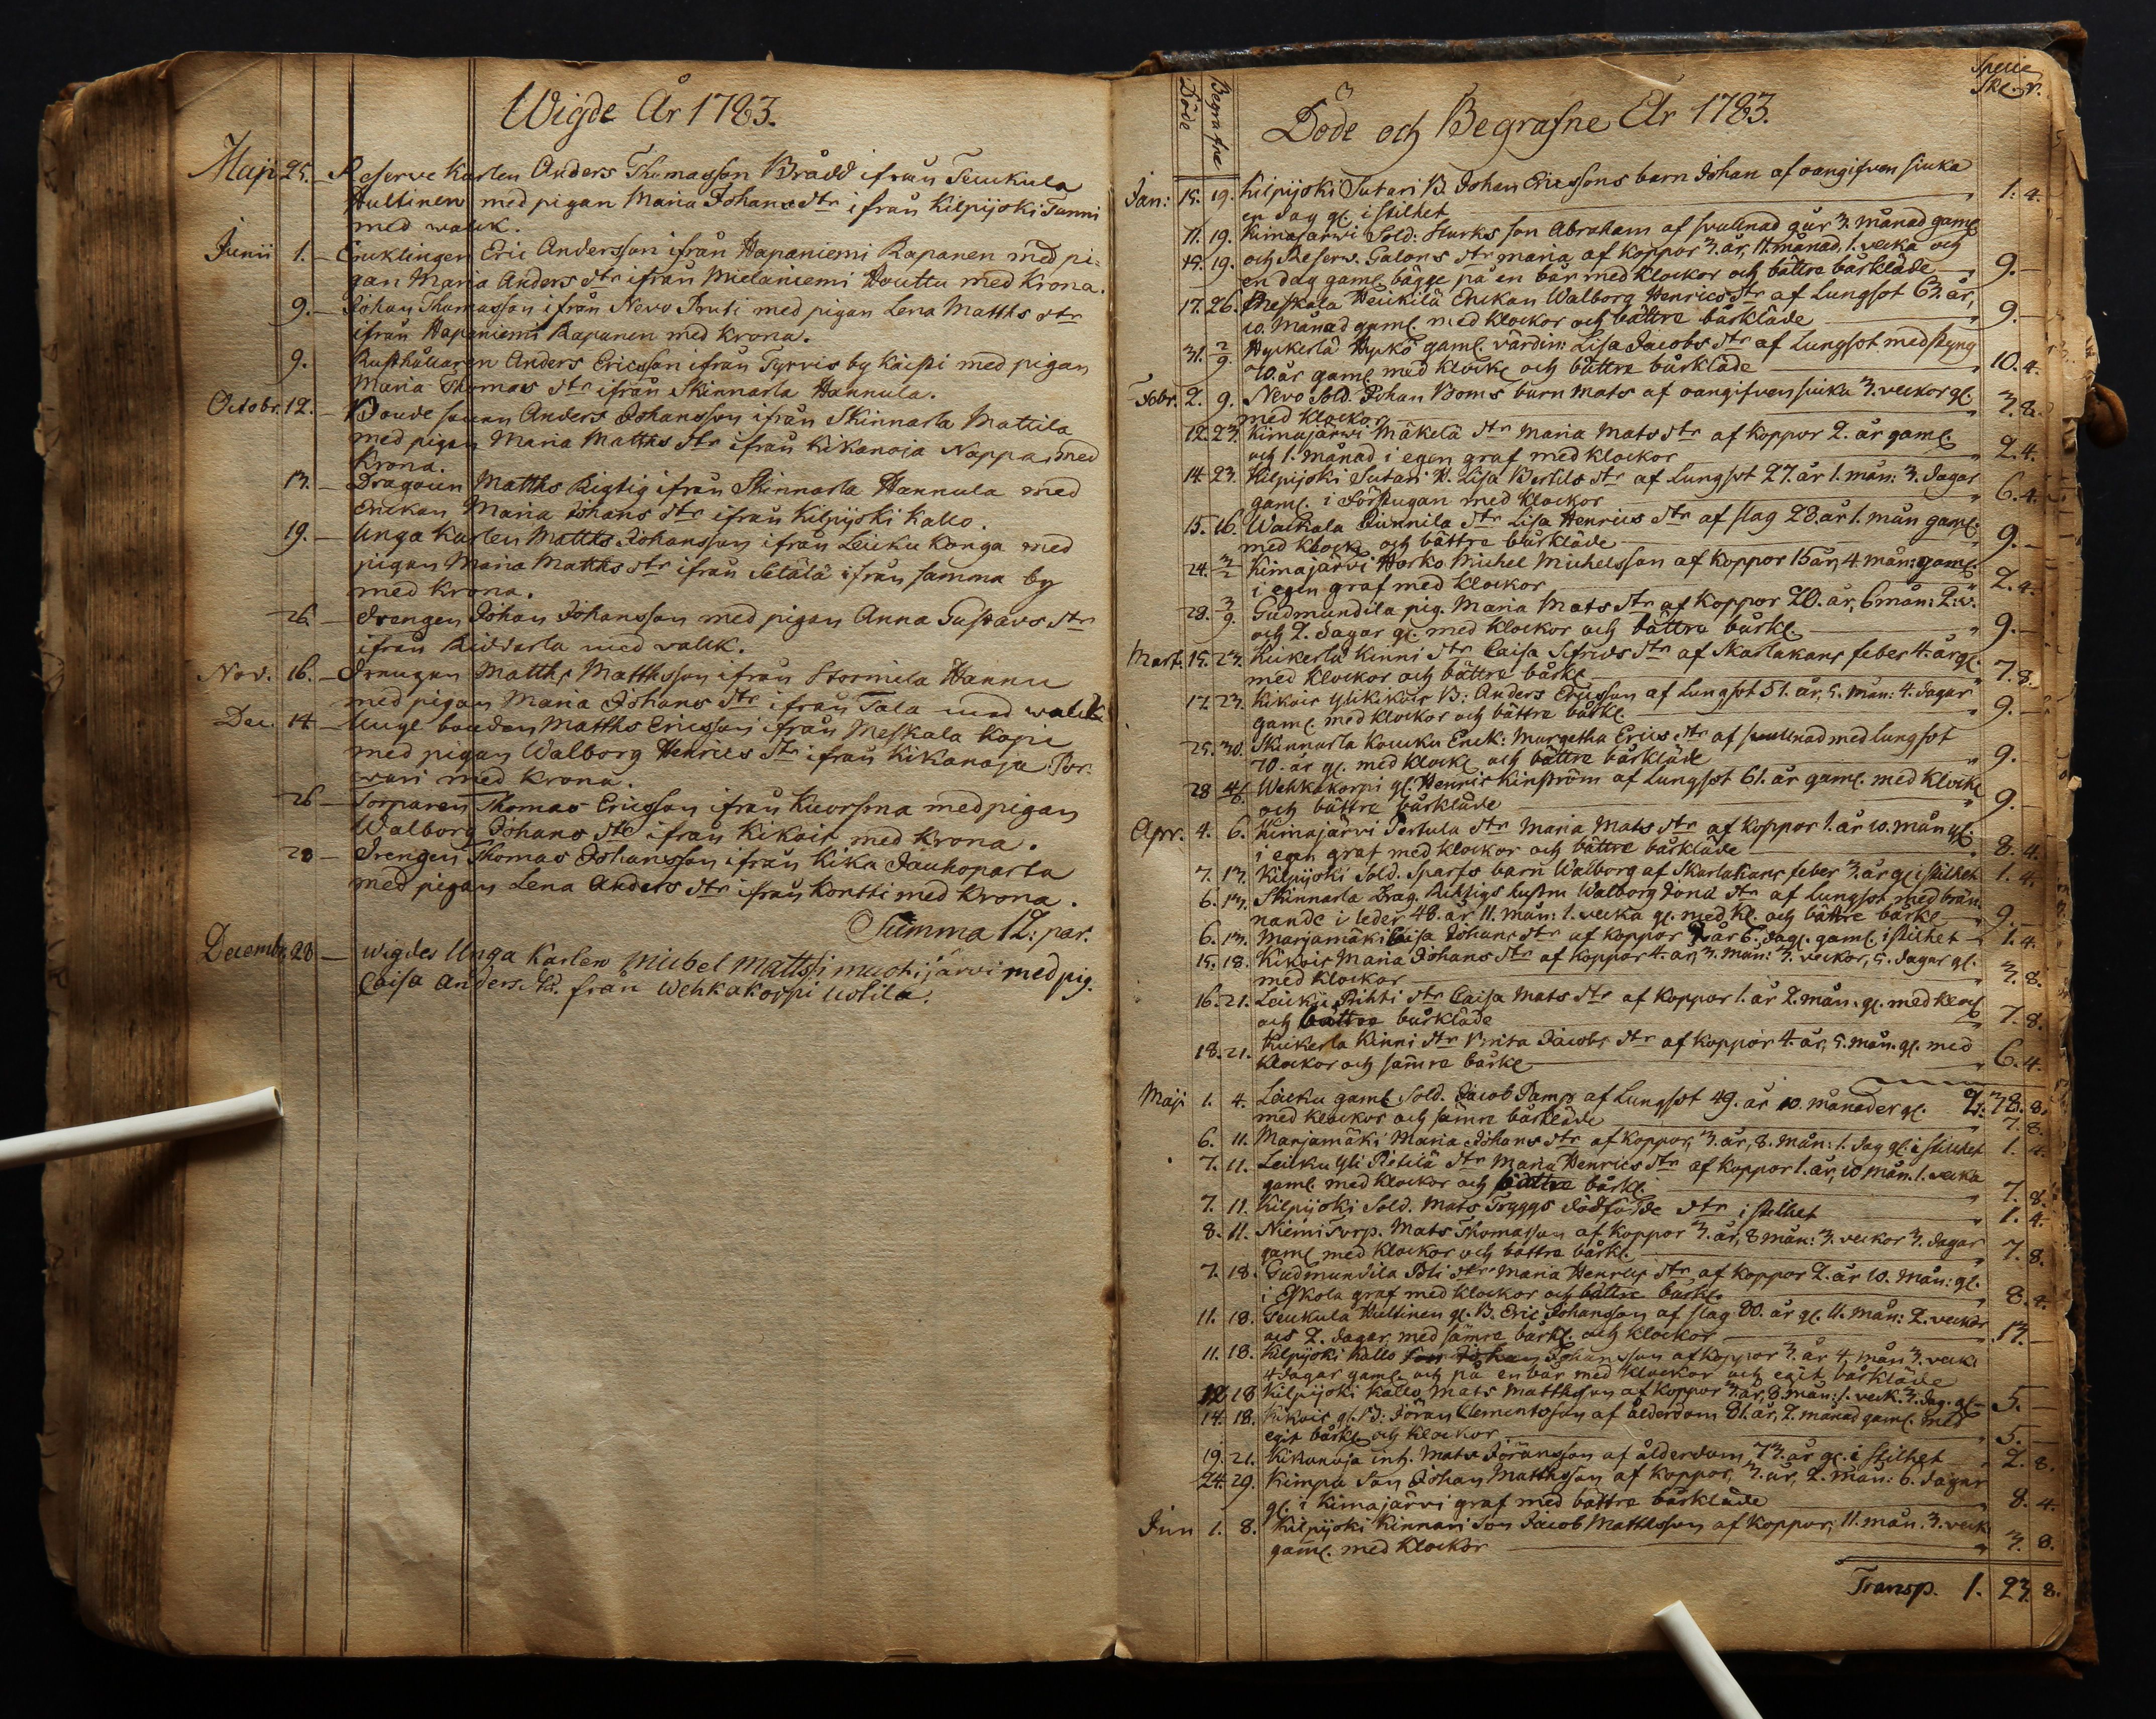 Wigde År 1783.
Maji 25. Reserve Karlen Anders Thomasson Brådd ifrån Teukula
Hultinen med pigan Maria Johans dtr ifrån Kilpijoki Tanni
med walck.
Junii 1. Enklingen Eric Andersson ifrån Hapaniemi Rapanen med pi-
gan Maria Anders dtr ifrån Mielaniemi Houttu med Krona.
9. Johan Thomasson ifrån Nevo Pruti med pigan Lena Matths dtr
ifrån Hapaniemi Rapanen med Krona.
9. Rusthållaren Anders Ericsson ifrån Tyrvis by Käispi med pigan
Maria Thomas dtr ifrån Skinnarla Hannula.
Octobr. 12. Bonde sonen Anders Johansson ifrån Skinnarla Mattila
med pigan Maria Matths dtr ifrån Kikanoja Nappa, med
Krona.
13. Dragoun Matths Rigtig ifrån Skinnarla Hannula med
Enckan Maria Johans dtr ifrån Kilpijoki Kallo.
19. Unga Karlen Matths Johansson ifrån Leicku Konga med
pigan Maria Matths dtr ifrån Setälä ifrån samma by
med Krona.
26. Drengen Johan Johansson med pigan Anna Gustavs dtr
ifrån Riddarla med valck.
Nov. 16. Drengen Matths Matthsson ifrån Stormila Hannu
med pigan Maria Johans dtr ifrån Tala med walck
Dec. 14 Unge bonden Matths Ericsson ifrån Meskala Kopi
med pigan Walborg Henrics dtr ifrån Kikanoja Por-
wari med Krona.
26 Torparen Thomas Ericsson ifrån med pigan
Walborg Johans dtr ifrån Kikois med Krona.
28 Drengen Thomas Johansson ifrån Kika Jauhoparta
med pigan Lena Anders dtr ifrån Kortti med Krona.
Summa 12: par.
Decembr. 28 wigdes Unga Karlen Michel Mattss: muohijärvi med pig.
Caisa anders. dr. från Wehkakorpi Uotila.
Döde
Begrafne
Döde och Begrafne År 1783.
Specie
Skl. r.
Jan: 15. 19. Kilpijoki Sutari B. Johan Ericssons barn Johan af oangifven siuka
en dag gl. i stilhet 1. 4.
11. 19. Kimajarwi Sold: Sturks son Abraham af svullnad 9 år 3. månad gaml
19. 19. och Reserv. Galons dtr maria af koppor 3. år, 11. månad, 1. vecka och
en dag gaml. bägge på en bår med klockor och bättre bårkläde 9. -
17. 26. Meskala Heikilä Enckan Walborg Henrics dtr af Lungsot 63. år,
10. månad gaml. med klockor och bättre bårkläde 9. -
31. 2/9. Hyckerlä Hyckö gaml. värdin: Lisa Jacobs dtr af Lungsot med styng
70. år gaml. med klockl och bättre bårkläde 10. 4.
Febr. 2. 9. Nevo Sold. Johan Boms barn Mats af oangifven siuka 3. veckor gl.
med klockor. 3. 8.
12. 23. Kimajärwi Mäkelä dtr Maria Mats dtr af koppor 2. år gaml.
och 1. månad i egen graf med klockor 2. 4.
14. 23. Kilpijoki Sutari H. Lisa Bertils dtr af Lungsot 27. år 1. mån: 3. dagar
gaml. i Förstugan med klockor 6. 4.
15. 16. Waickala Junnila dtr Lisa Henrics dtr af slag 28. år 1. mån gaml.
med klock. och bättre bårkläde 9. -
24. 3/2 Kimajärvi Horko Michel Michelsson af koppor 15 år, 4. mån: gaml.
i egen graf med klockor 2. 4.
28. 3/9. Gudmundila pig. Maria Mats dtr af koppor 20. år, 6 mån: 2. v.
och 2. dagar gl. med klockor och bättre bårkl. 9. -
Mart. 15. 23. Kiikerlä Kinni dtr Caisa Sifrids dtr af Skarlakans feber 4. år gl.
med klockor och bättre bårkl. 7. 8.
17. 23. Kikois Ylikikois B: Anders Ericsson af Lungsot 51. år, 5. mån: 4. dagar
gaml. med klockor och bättre bårkl. 9. -
25. 30. Skinnarla Kouku Enck: Margetha Erics dtr af svullnad med lungsot
70. år gl. med klockl och bättre bårkläde 9. -
28 4/6. Wehkakorpi gl. Henric Kinström af Lungsot 61. år gaml. med klockl
och bättre bårkläde 9. -
Apr. 4. 6. Kimajärvi Pertula dtr Maria Mats dtr af koppor 1. år 10. mån gl.
i egen graf med klockor och bättre bårkläde 8. 4.
7. 13. Kilpijoki Sold. Sparfs barn Walborg af Skarlakans feber 3. år gl. i stilhet 1. 4.
6. 13. Skinnarla Drag. Richtigs hustru Walborg Jona dtr af lungsot med brän-
nande i leder 48. år 11. mån: 1. vecka gl. med kl. och bättre bårkl. 9.
6. 13. Marjamäki Caisa Johans dtr af koppor år 6. dagl. gaml. i stilhet 1. 4.
15. 18. Kikois Maria Johans dtr af koppor 4. år, 3. mån: 3. veckor, 5. dagar gl.
med klockor 3. 8.
16. 21. Leicku Prihti dtr Caisa Mats dtr af koppor 1. år 2. mån. gl. med klock
och bättre bårkläde 7. 8.
18. 21. Kiikerla Kinni dtr Brita Jacobs dtr af koppor 4. år, 5. mån. gl. med
klockor och sämre bårkl 6. 4.
Maji 1. 4. Leicku gaml Sold. Jacob Damp af Lungsot 49. år 10. månader gl. 2. 38. 8.
med klockor och sämre bårkläde 7. 8.
6. 11. Marjamäki Maria Johans dtr af koppor, 3. år, 8. mån: 1. dag gl. i stilhet 1. 4.
7. 11. Leicku Yli Pietilä dtr Maria Henrics dtr af koppor 1. år, 10 mån. 1. vecka
gaml. med klockor och bättre bårkl. 7. 8.
7. 11. Kilpijoki Sold. Mats Tryggs dödfödde dtr i stilhet 1. 4.
8. 11. Niemi Torp. Mats Thomasson af koppor 3. år, 8 mån: 3. veckor 3. dagar
gaml med klockor och bättre bårkl. 7. 8.
7. 18. Gudmundila Pöli dtr Maria Henrics dtr af koppor 2. år 10. mån: gl.
i Eskola graf med klockor och bättre bårkl. 8. 4.
11. 18. Teukula Hultinen gl. B. Eric Johansson af slag 80. år gl. 11. mån: 2. veckor
och 2. dagar, med sämre bårkl. och klockor 13. -
11. 18. Kilpijoki Kallo Johansson af koppor 3. år 4. mån 3. veck
4 dagar gaml. och på en bår med klockor och egit bårkläde
12 18 Kilpijoki Kallo Mats Matthsson af koppor 3. år, 8. mån: 1. veck. 3. dag. gl. 5. -
14. 18. Kikois gl. B: Jöran Clementsson af ålderdom 81. år, 2. månad gaml. med
egit bårkl och klockor 5. -
19. 21. Kikanoja inh. Mats Jöransson af ålderdom, 73. år gl. i stilhet 2. 8.
24. 29. Kimpa Son Johan Matthsson af koppor, 3. år, 2. mån: 6. dagar
gl. i Kimajärvi graf med bättre bårkläde 8. 4.
Jun 1. 8. Kilpijoki Kinnari Son Jacob Matthsson af koppor, 11. mån. 3. veck
gaml. med klockor 3. 8.
Transp. 1. 23. 8.